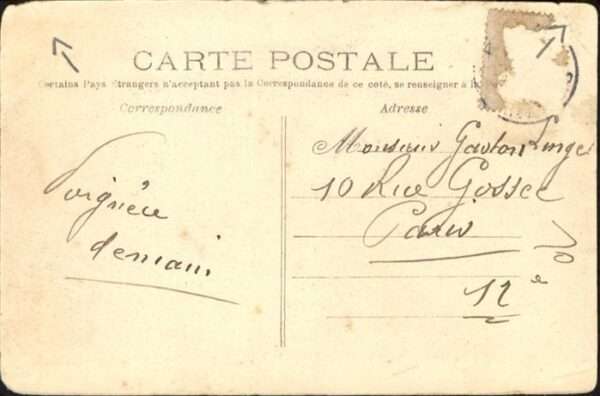 CARTE POSTALE
Certains Pays Etrangers n'acceptant pas la Correspondance de ce coté, se renseigner à la
Correspondance
Adresse
Monsieur Gaston
10 Rue Gossec
Paris
12e
demain